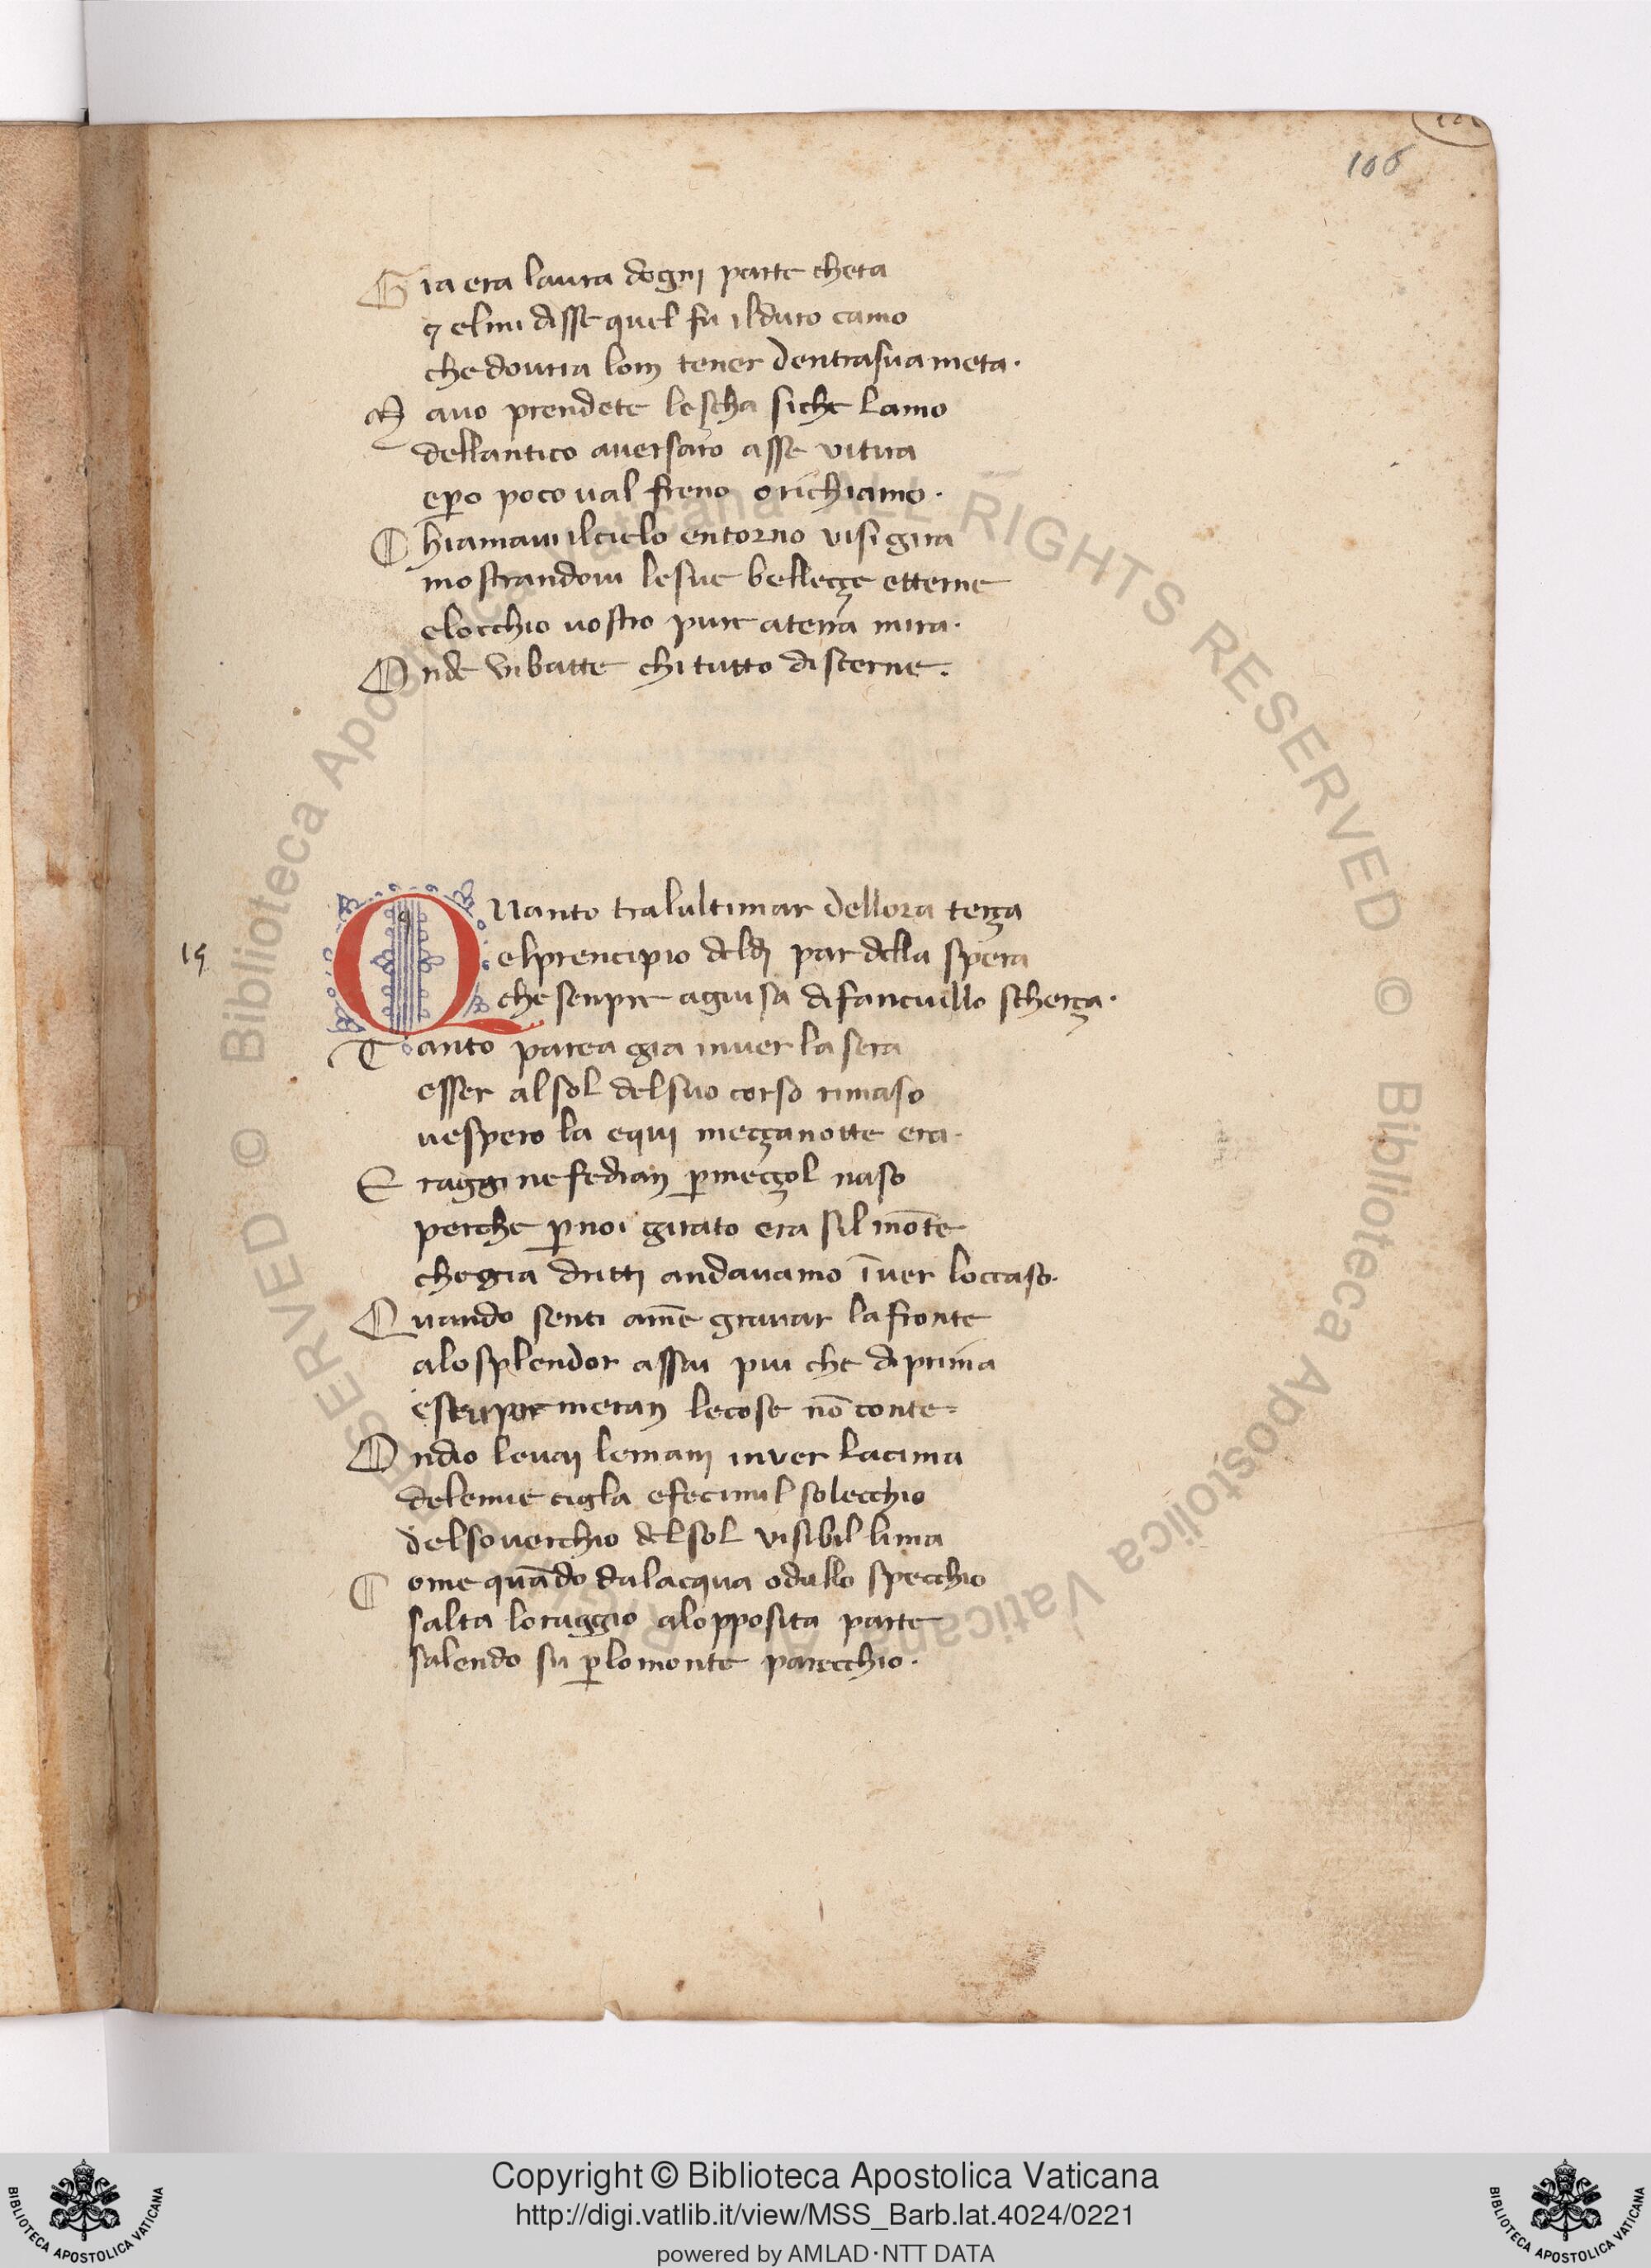 106
Gia era laura dogni parte cheta
⁊ elmi disse quel fu ilduro camo
che douria lom tener dentrasuameta·
M auo prendete lescha siche lamo
dellantico auersaro asse vitira
eꝑo poco ual freno orichiamo·
Chiamaui ilcielo entorno visigira
mostrandoui lesue belleçe etterne
elocchio uostro pur aterra mira·
Onde vibatte chitutto discerne.
19
Quanto tralultimar dellora terça
elprencipio deldj par della spera
chesenpre aguisa difanciullo scherça·
Tanto parea gia inuer la sera
esser alsol delsuo corso rimaso
uespero la equi meççanotte era·
E raggi nefedian ꝑmeççol naso
perche ꝑnoi girato era sil mōte
chegia dritti andauamo īuer loccaso·
Quando senti amē grauar lafronte
alosplendor assai piu che diprima
estupor meran lecose nō conte
Ondio leuai lemani inver lacima
delemie cigla efecimil solecchio
delsouerchio delsol visibil lima
Come quādo dalacqua odallo specchio
salta loraggio alopposita parte
salendo su ꝑlomonte parecchio·
© Biblioteca Apostolica Vaticana ALL RIGHTS RESERVED
© Biblioteca Apostolica Vaticana ALL RIGHTS RESERVED
Copyright © Biblioteca Apostolica Vaticana
http://digi.vatlib.it/view/MSS_Barb.lat.4024/0221
powered by AMLAD·NTT DATA
BIBLIOTECA APOSTOLICA VATICANA
BIBLIOTECA APOSTOLICA VATICANA